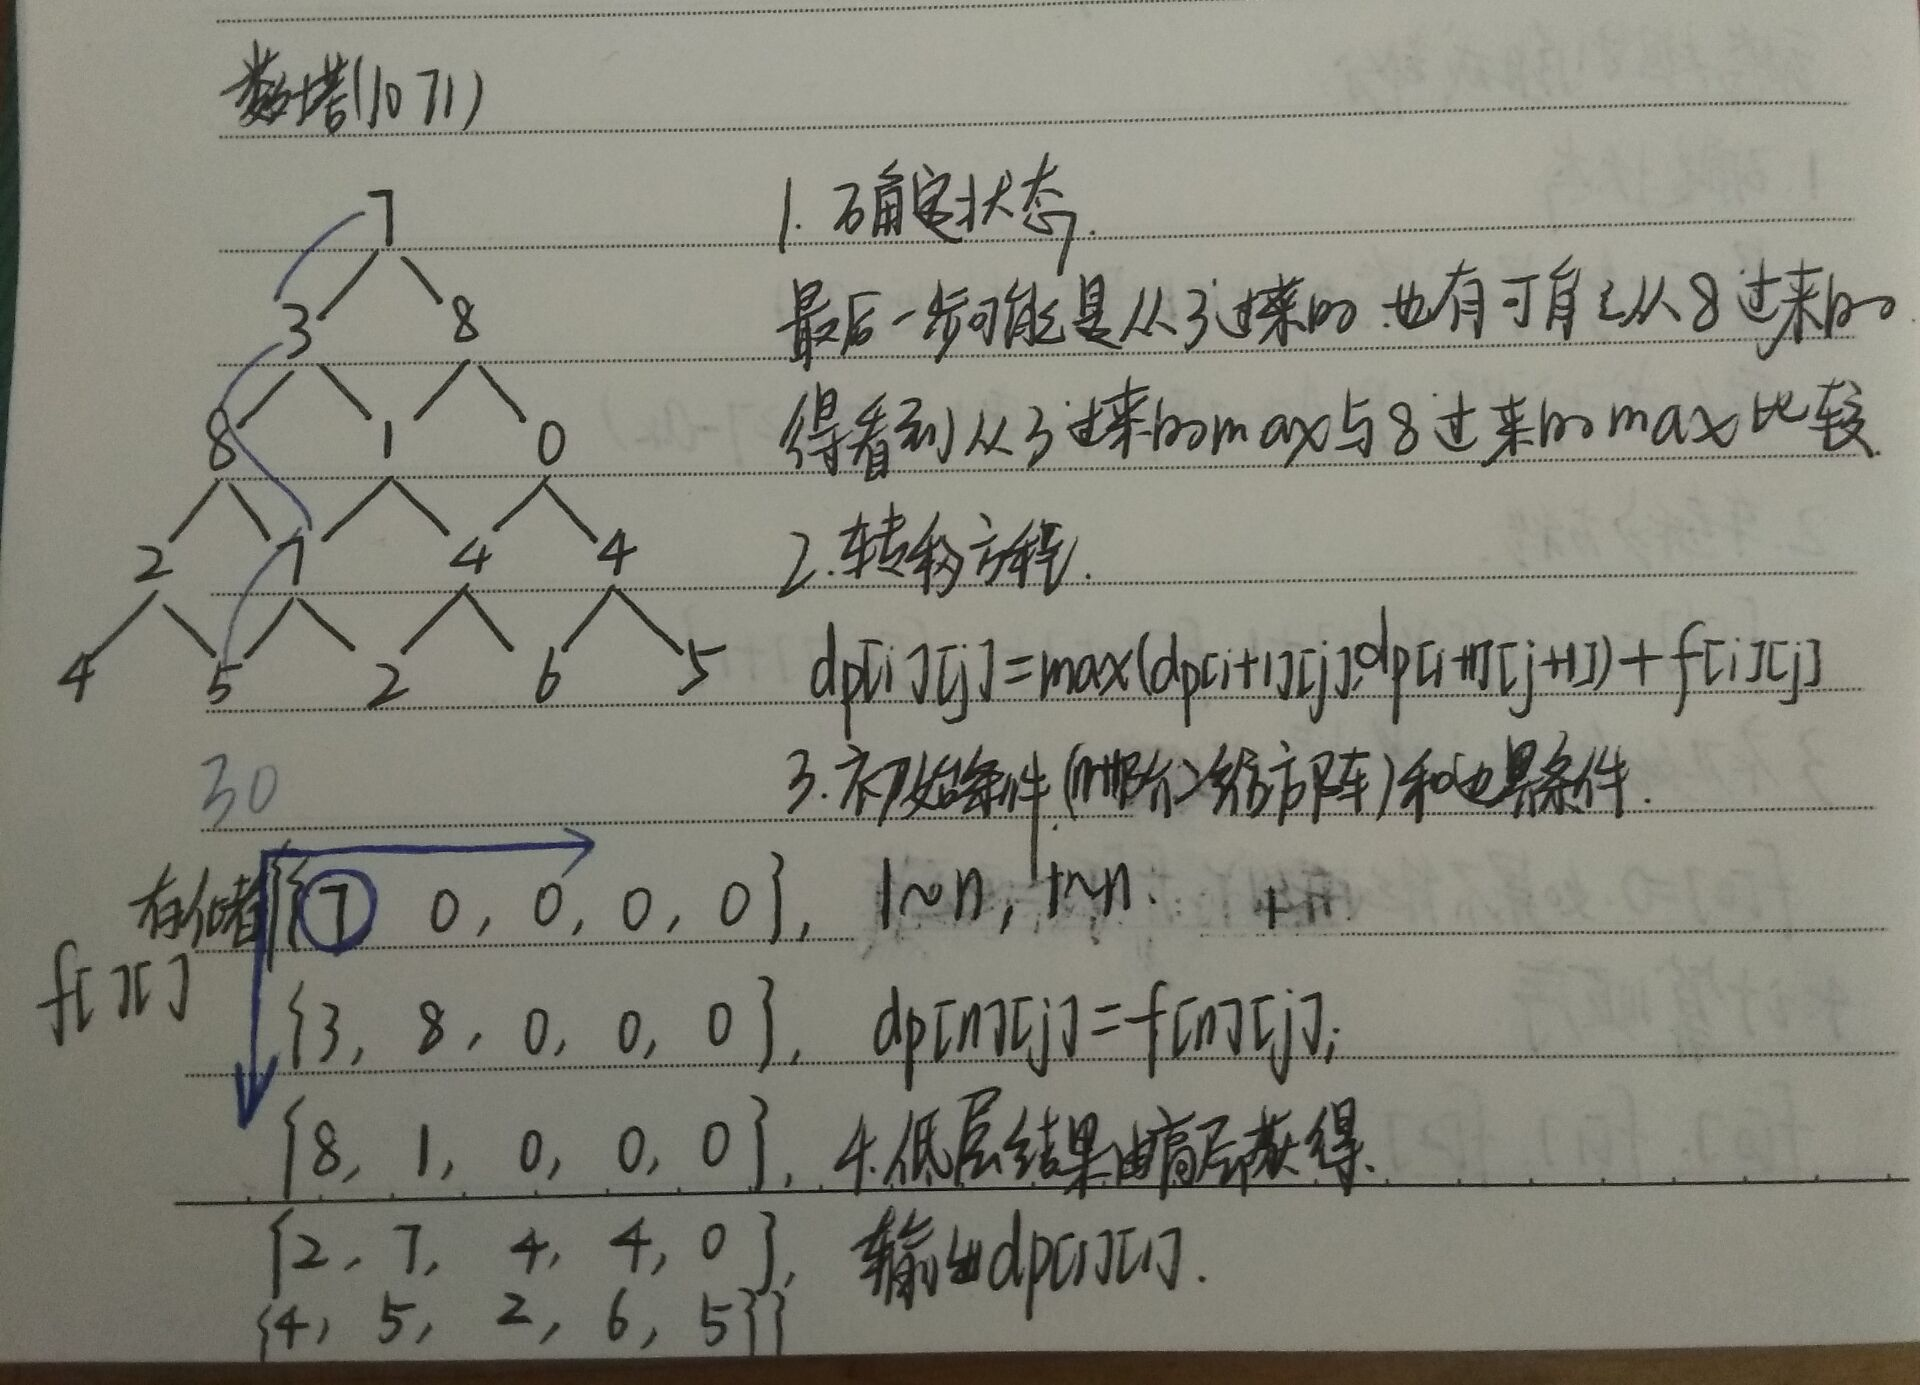 数塔(1071)
7
3 8
8 1 0
2 7 4 4
4 5 2 6 5
30
1.确定状态.
最后一步可能是从3过来的 也有可能从8过来的.
得看到从3过来的max与8过来的max比较
2.转移方程.
dp[i][j]=max(dp[i+1][j],dp[i+1][j+1])+f[i][j]
3.初始条件 和边界条件.
1~n, 1~n.
dp[n][j]=f[n][j];
4.低层结果由高层获得.
输出dp[1][1].
存储
f[][]
{{7 0, 0, 0, 0},
{3, 8, 0, 0, 0},
{8, 1, 0, 0, 0},
{2, 7, 4, 4, 0},
{4, 5, 2, 6, 5}}